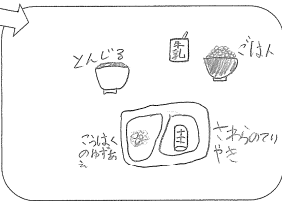 とんじる
牛乳
ごはん
こうはく
のゆずあ
え
さわらのてり
やき